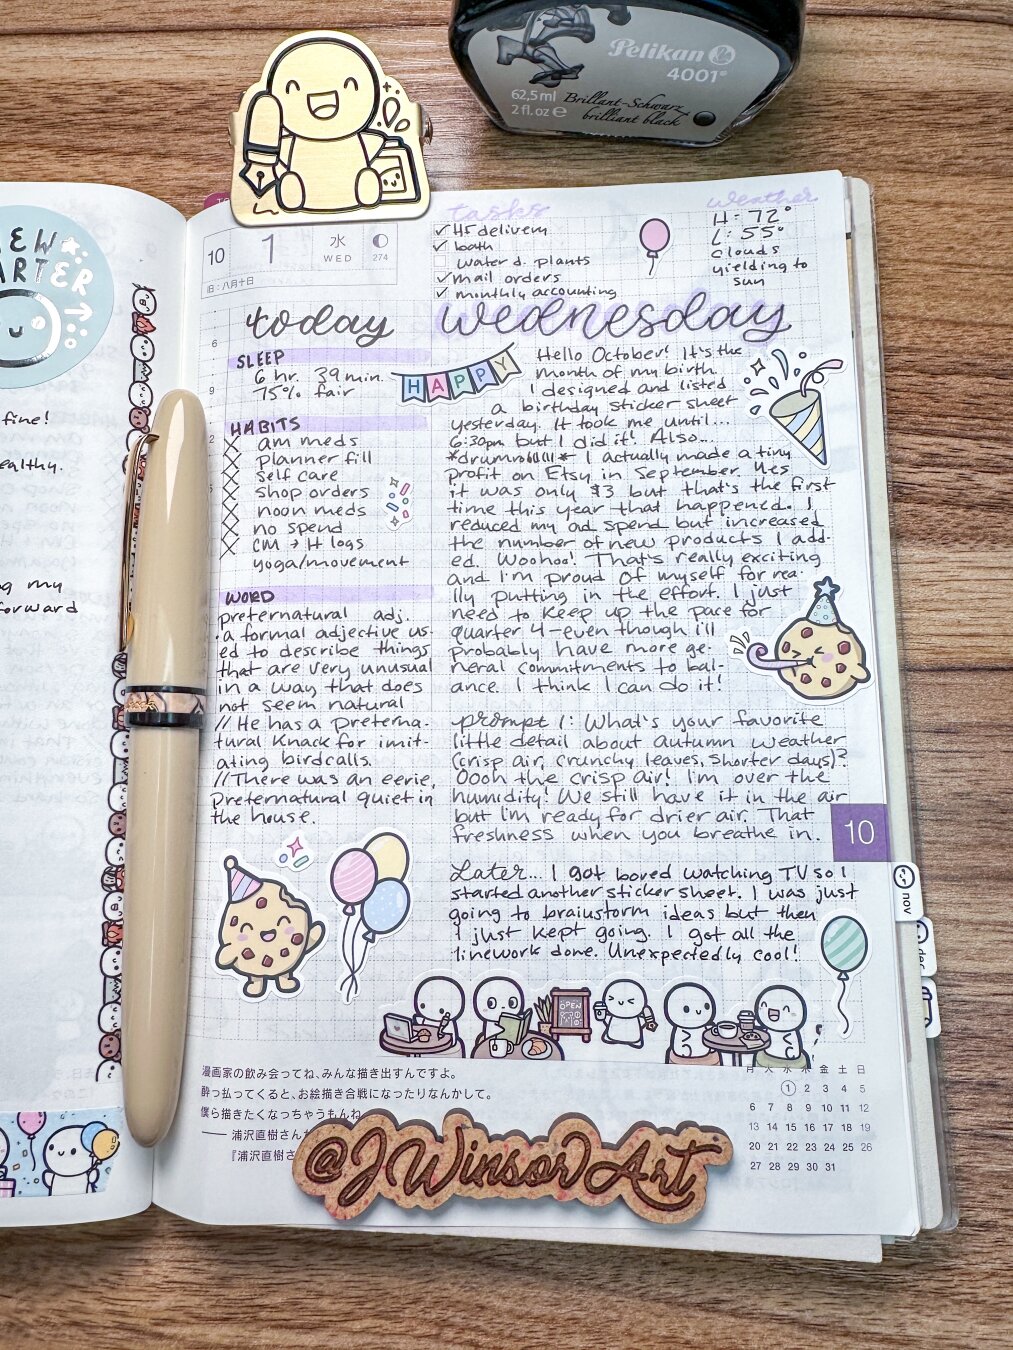 Pelikan
4001®
62,5 ml
2 fl. oz e
Brillant-Schwarz
brilliant black
NEW
fine!
my
forward
10
1
水
WED
274
旧:八月十日
tasks
✓ HF delivery
✓ bath
water d. plants
✓ mail orders
✓ monthly accounting
weather
H: 72°
L: 55°
clouds
yielding to
sun
today wednesday
6
9
SLEEP
6 hr. 39 min.
75% fair
HABITS
X am meds
X planner fill
X self care
X shop orders
X noon meds
X no spend
X CM → H logs
yoga/movement
WORD
preternatural adj.
a formal adjective us-
ed to describe things
that are very unusual
in a way that does
not seem natural
// He has a preterna-
tural knack for imit-
ating birdcalls.
// There was an eerie,
preternatural quiet in
the house.
HAPPY
Hello October! It's the
month of my birth.
I designed and listed
a birthday sticker sheet
yesterday. It took me until...
6:30pm but I did it! Also...
*drumrollllll* I actually made a tiny
profit on Etsy in September. Yes
it was only $3 but that's the first
time this year that happened. I
reduced my ad spend but increased
the number of new products I add-
ed. Woohoo! That's really exciting
and I'm proud of myself for rea-
lly putting in the effort. I just
need to keep up the pace for
quarter 4-even though i'll
probably have more ge-
neral commitments to bal-
ance. I think I can do it!
prompt 1: What's your favorite
little detail about autumn weather
(crisp air, crunchy leaves, shorter days)?
Oooh the crisp air! I'm over the
humidity! We still have it in the air
but I'm ready for drier air. That
freshness when you breathe in.
Later... I got bored watching TV so I
started another sticker sheet. I was just
going to brainstorm ideas but then
I just kept going. I got all the
linework done. Unexpectedly cool!
10
nov
OPEN
漫画家の飲み会ってね、みんな描き出すんですよ。
酔っ払ってくると、お絵描き合戦になったりなんかして。
僕ら描きたくなっちゃうもんね
── 浦沢直樹さん
『浦沢直樹さ
月 火 水 木 金 土 日
1 2 3 4 5
6 7 8 9 10 11 12
13 14 15 16 17 18 19
20 21 22 23 24 25 26
27 28 29 30 31
@JWinsorArt